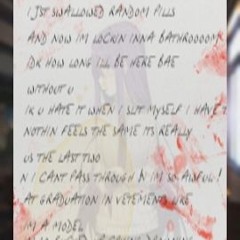 I JST SWALLOWED RANDOM PILLS
AND NOW IM LOCKIN INNA BATHROOOOM
IDK HOW LONG ILL BE HERE BAE
WITHOUT U
IK U HATE IT WHEN I SLIT MYSELF I HAVE T
NOTHIN FEELS THE SAME ITS REALLY
US THE LAST TWO
N I CANT PASS THROUGH N IM SO AWFUL!
AT GRADUATION IN VETEMENTS LIKE
IM A MODEL